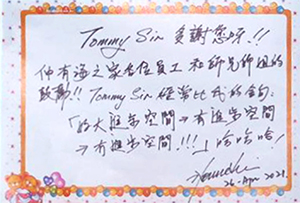 Tommy Sir 多謝您呀!!
仲有海之家各位員工和師兄師姐的
鼓勵!! Tommy Sir 經常比我的金句:
「好大進步空間→有進步空間
→冇進步空間!!!」哈哈哈!
26-Apr 2021.